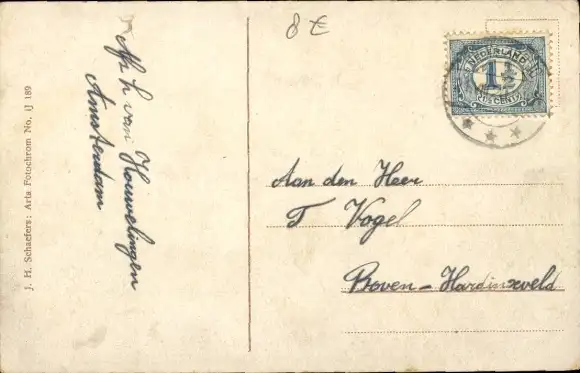 8 €
NEDERLAND
1½
CENT
Afz h van Houwelingen
Amsterdam
Aan den Heer
T Vogel
Boven-Hardinxveld
J. H. Schaefers: Arta Fotochrom No. ij 189